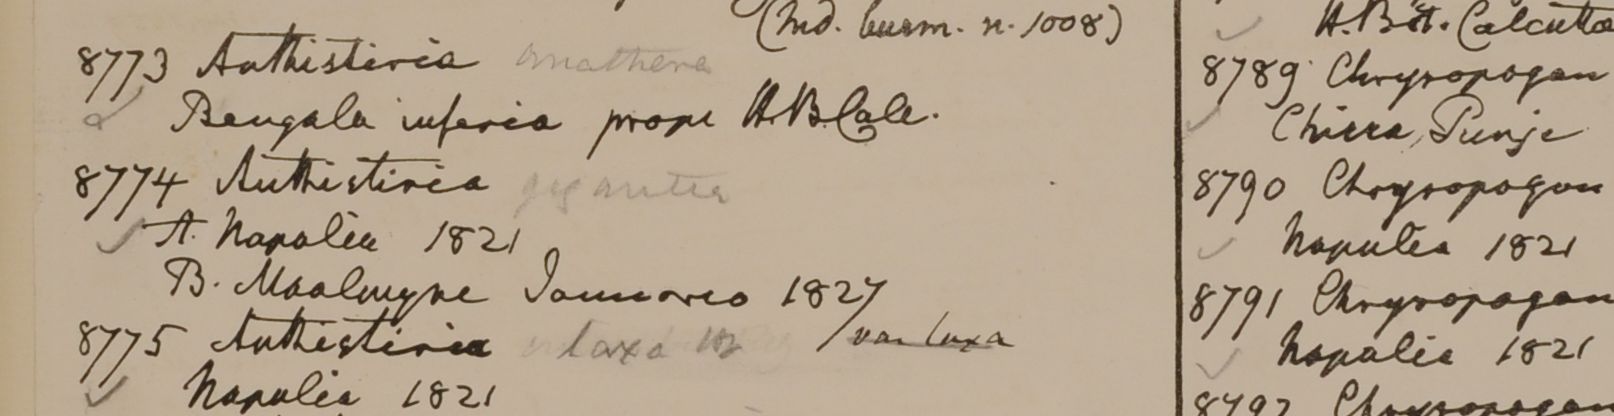 (Ind. burm. n. 1008)
8773 Anthistiria anathera
Bengala inferia prope H.B. Calc.
8774 Anthistiria gigantea
A. Napalia 1821
B. Maalmyne Januario 1827
8775 Anthistiria laxa var laxa
Napalia 1821
H. Bot. Calcutta
8789 Chrysopogon
Chirra Punje
8790 Chrysopogon
Napalia 1821
8791 Chrysopogon
Napalia 1821
8792 Chrysopogon